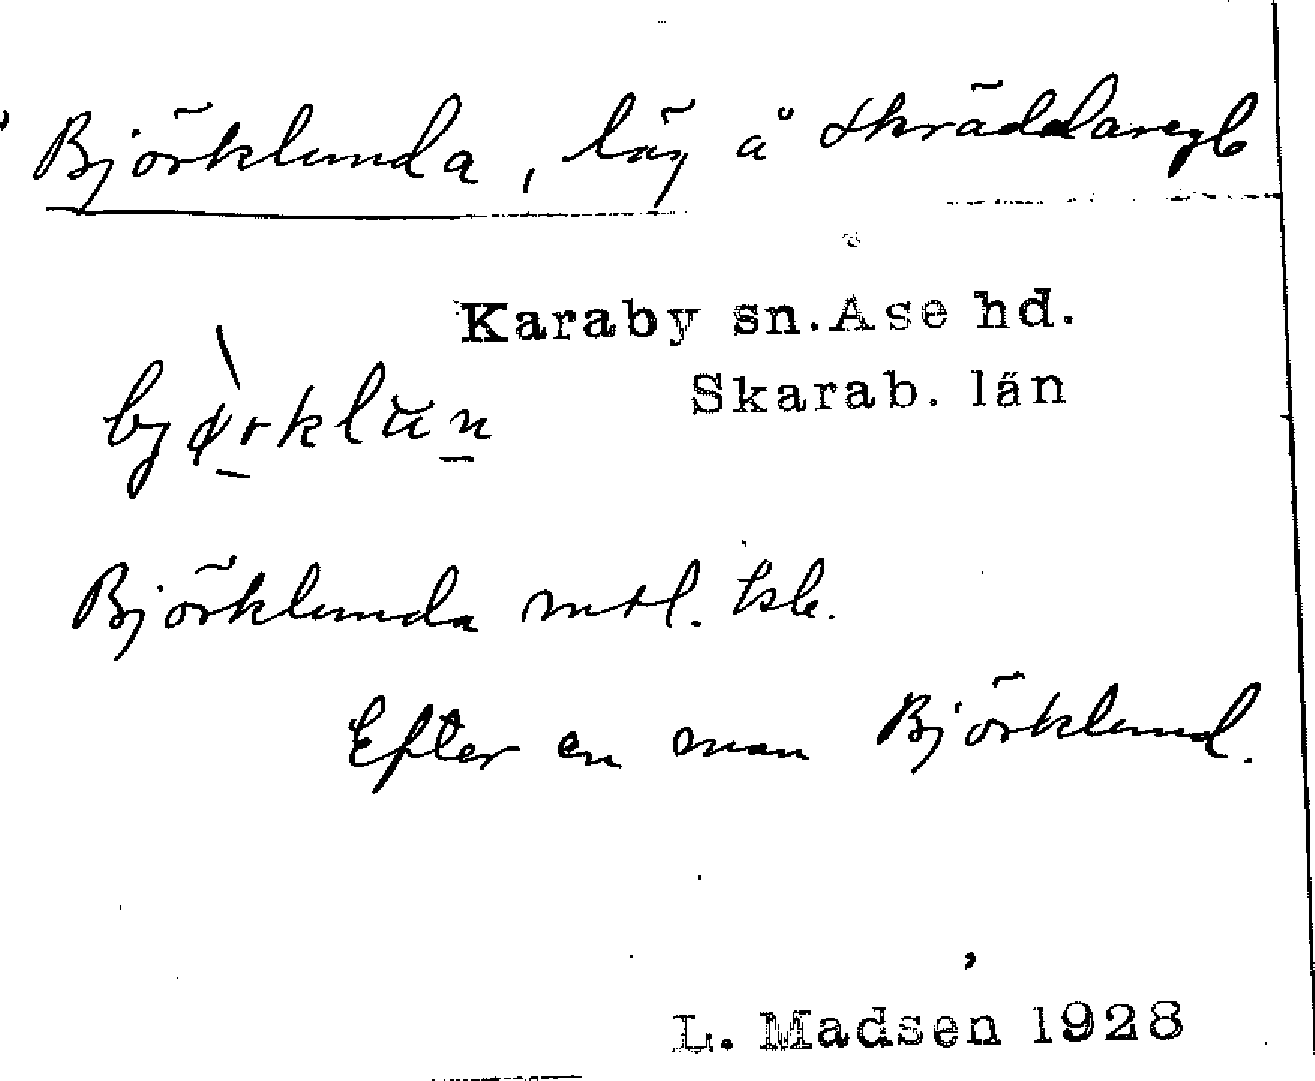 Björklunda, läg å Skräddaregb
Karaby sn. Åse hd.
Skarab. län
bjørklun
Björklunda mtl. bsk.
Efter en man Björklund.
L. Madsen 1928